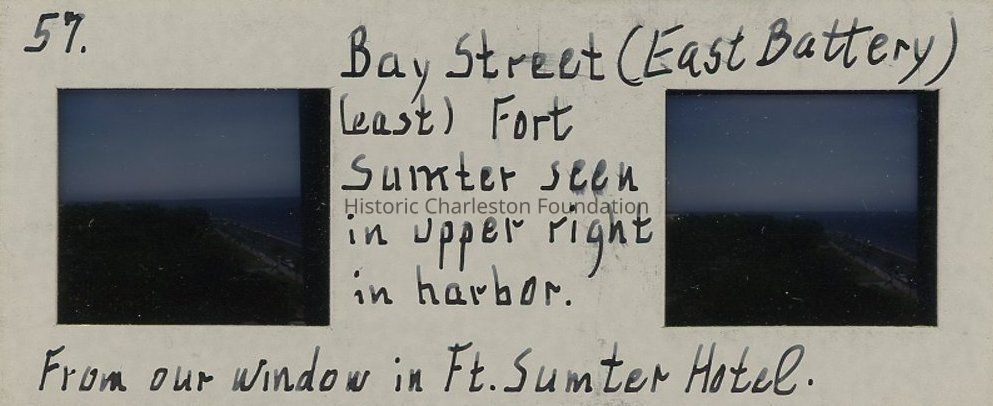 57.
Bay Street (East Battery)
(east) Fort
Sumter seen
Historic Charleston Foundation
in upper right
in harbor.
From our window in Ft. Sumter Hotel.